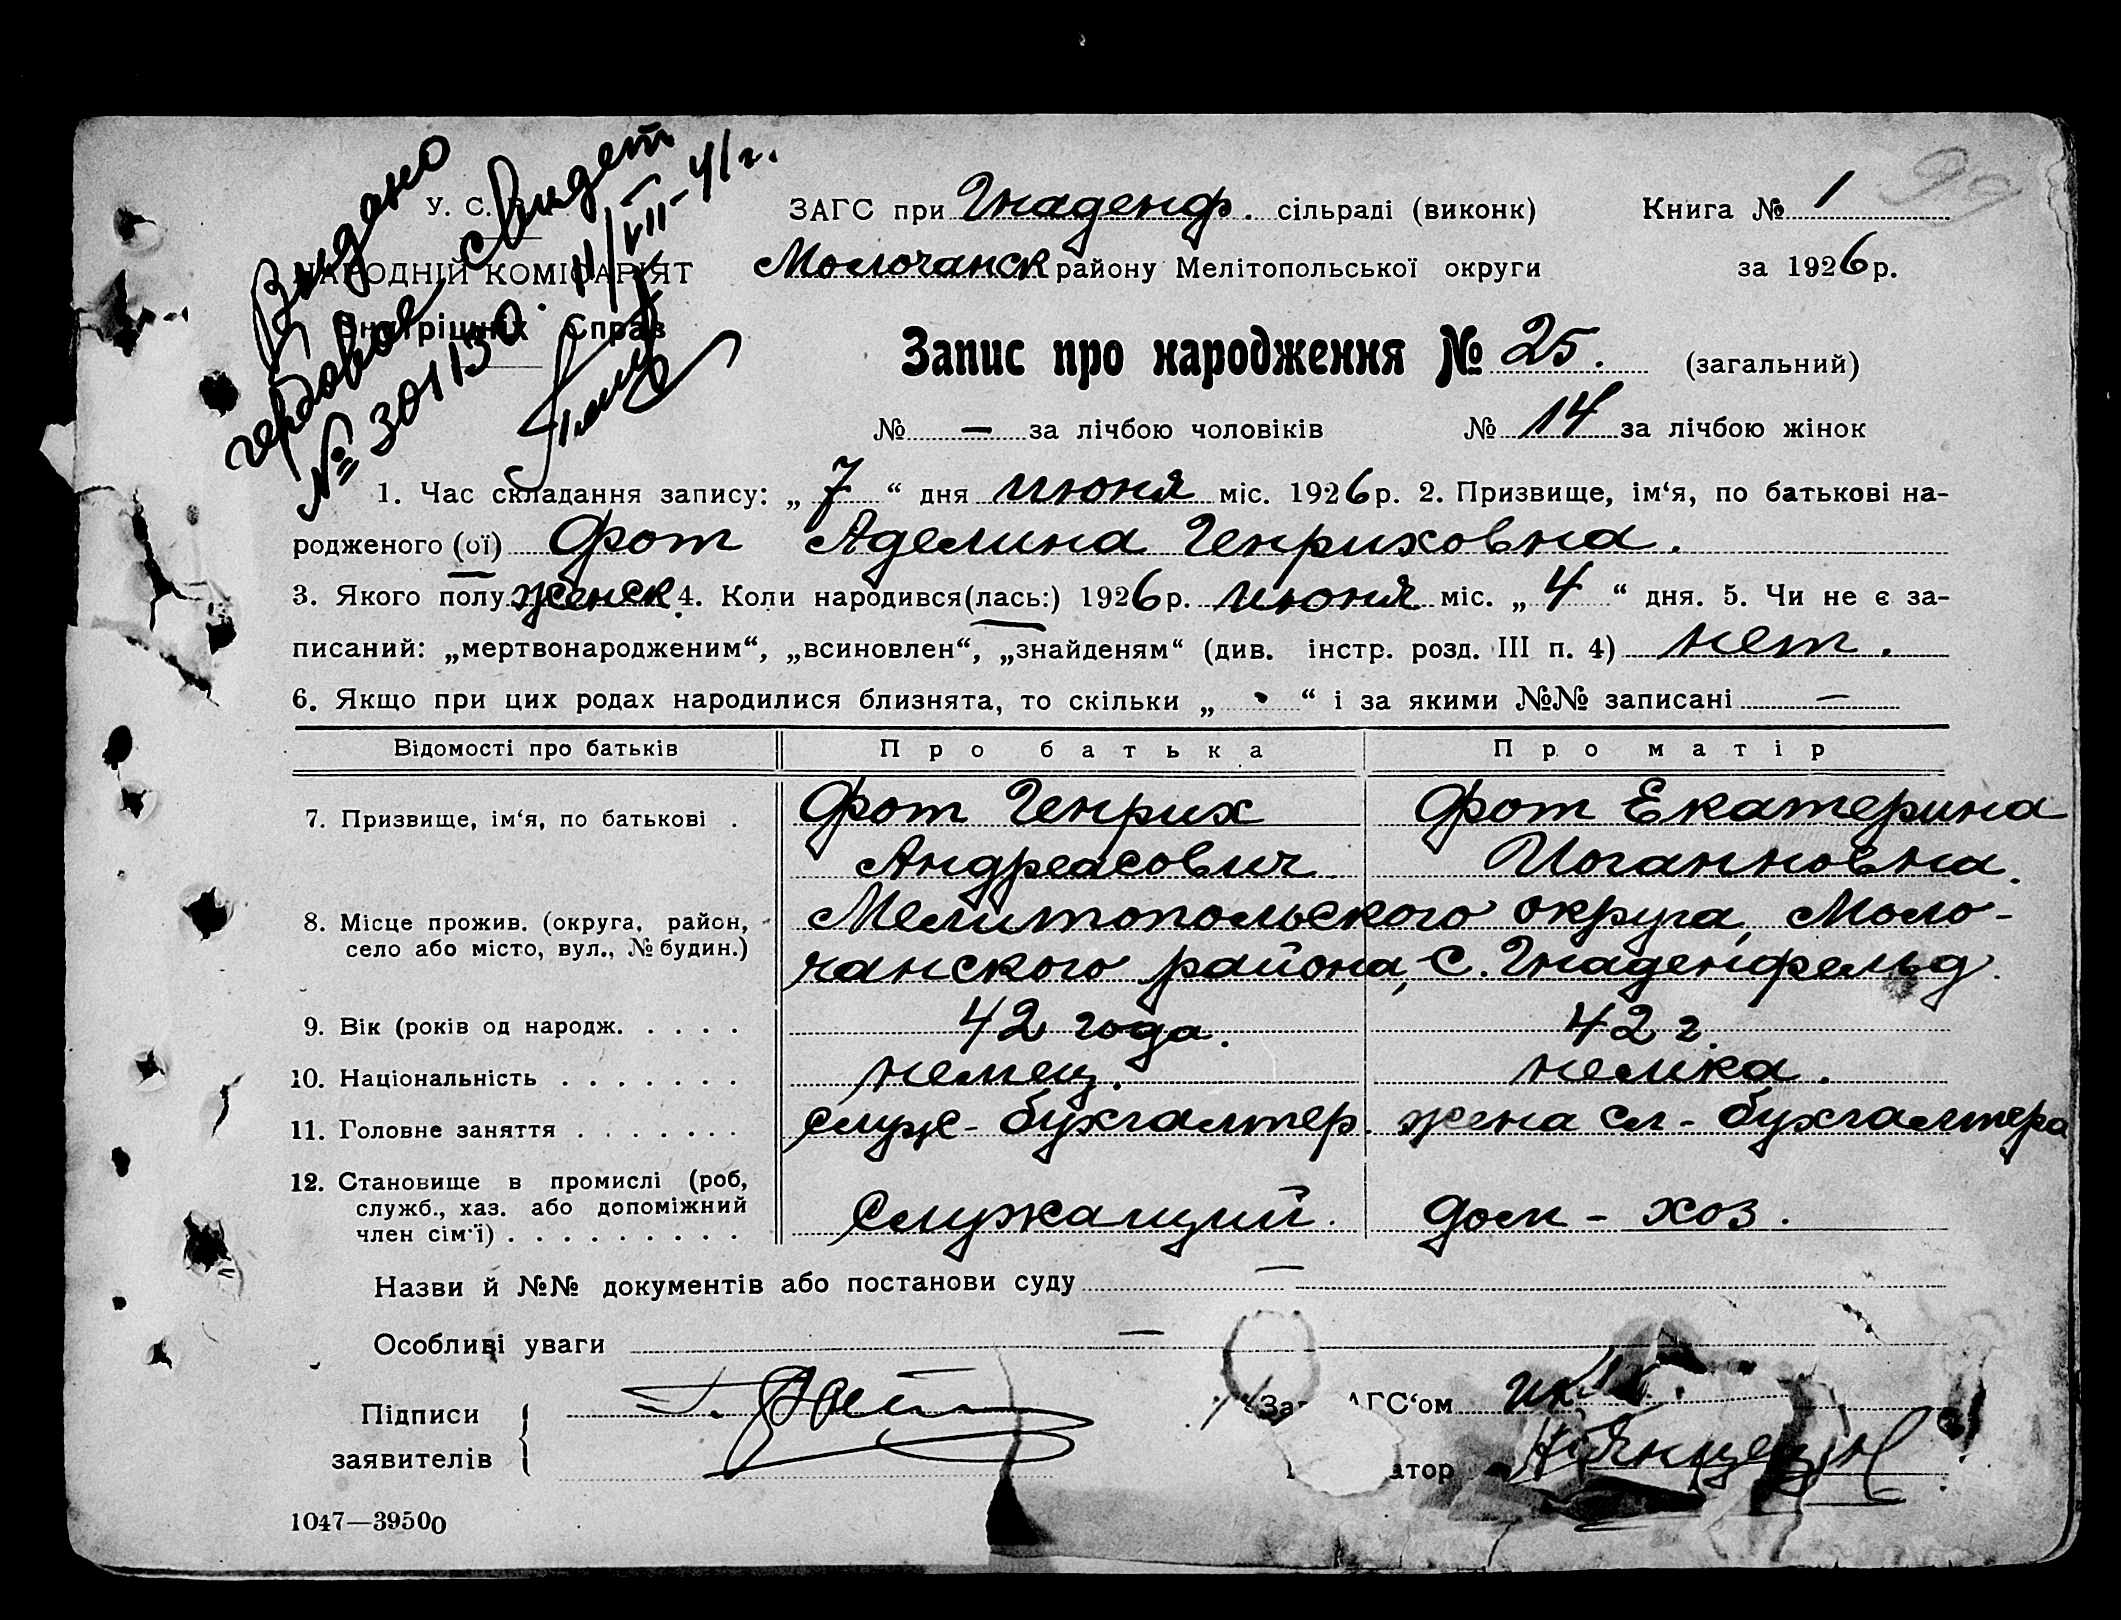 Видано
гербовое свидет
№ 301130. 11/VII-41 г.
У. С.
НАРОДНІЙ КОМІСАРІЯТ
Внутрішніх Справ
99
ЗАГС при Гнаденф. сільраді (виконк) Книга № 1
Молочанск району Мелітопольської округи за 1926 р.
Запис про народження № 25. (загальний)
№ — за лічбою чоловіків № 14 за лічбою жінок
1. Час складання запису: „ 7 “ дня июня міс. 1926 р. 2. Призвище, ім‘я, по батькові на-
родженого (ої) Фот Аделина Генриховна.
3. Якого полу женск. 4. Коли народився(лась:) 1926 р. июня міс. „ 4 “ дня. 5. Чи не є за-
писаний: „мертвонародженим“, „всиновлен“, „знайденям“ (див. інстр. розд. III п. 4) нет.
6. Якщо при цих родах народилися близнята, то скільки „ - “ і за якими №№ записані —
Відомості про батьків Про батька Про матір
7. Призвище, ім‘я, по батькові . Фот Генрих Фот Екатерина
Андреасович. Иоганновна.
8. Місце прожив. (округа, район, Мелитопольского округа, Моло-
село або місто, вул., № будин.) чанского района, с. Гнаденфельд.
9. Вік (років од народж. . . . . 42 года. 42 г.
10. Національність . . . . . . . немец. немка.
11. Головне заняття . . . . . . . служ - бухгалтер. жена сл - бухгалтера
12. Становище в промислі (роб,
служб., хаз. або допоміжний Служащий. дом - хоз.
член сім‘ї) . . . . . . . . .
Назви й №№ документів або постанови суду —
Особливі уваги —
Підписи Г. Фот За АГС‘ом
заявителів атор
1047—39500